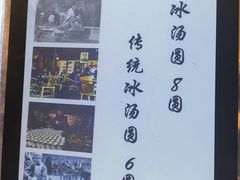 冰汤圆 8圆
传统冰汤圆 6圆